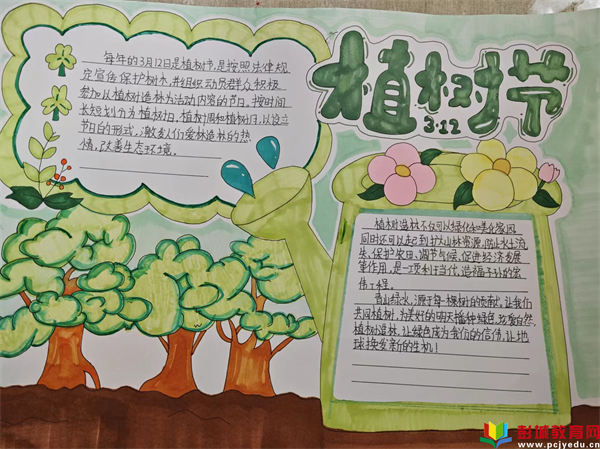 植树节
3.12
每年的3月12日是植树节,是按照法律规
定宣传保护树木,并组织动员群众积极
参加以植树造林为活动内容的节日。按时间
长短划分为植树日,植树周和植树月,以设立
节日的形式,激发人们爱林造林的热
情,改善生态环境。
植树造林不仅可以绿化和美化家园
同时还可以起到扩大山林资源,防止水土流
失、保护农田、调节气候、促进经济发展
等作用,是一项利于当代,造福子孙的宏
伟工程。
青山绿水,源于每一棵树的贡献,让我们
共同植树,为美好的明天播种绿色,珍爱自然,
植树造林,让绿色成为我们的信仰,让地
球换发新的生机!
彭城教育网
www.pcjyedu.cn